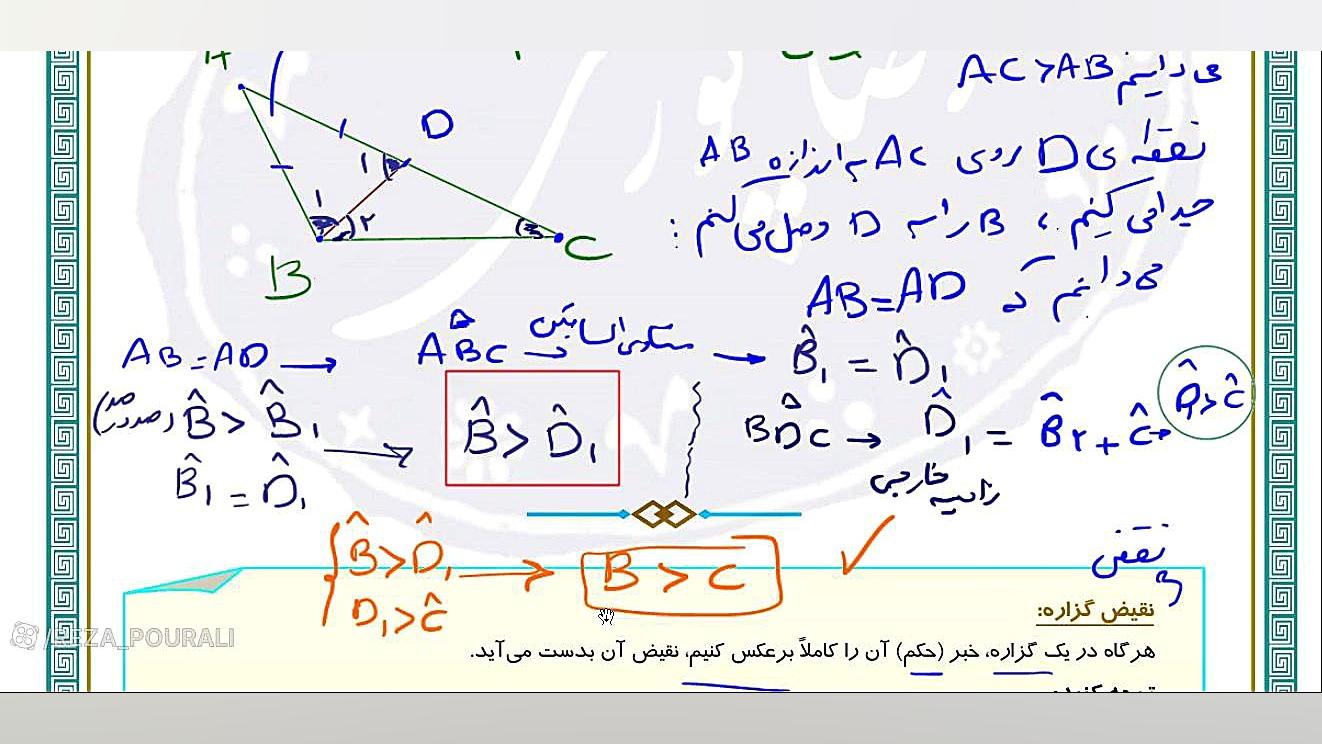 A
D
1
1
2
B
C
می دانیم AC > AB
نقطه ی D روی AC به اندازه AB
جدا می کنیم، B را به D وصل می کنیم:
می دانیم که AB = AD
AB = AD → ABC → متساوی الساقین → B̂₁ = D̂₁
B̂ > B̂₁
B̂₁ = D̂₁
B̂ > D̂₁
BDC → D̂₁ = B̂۲ + Ĉ → D̂₁ > Ĉ
زاویه خارجی
B̂ > D̂₁
D₁ > Ĉ
B > C
نقض
نقیض گزاره:
هرگاه در یک گزاره، خبر (حکم) آن را کاملاً برعکس کنیم، نقیض آن بدست می‌آید.
REZA_POURALI